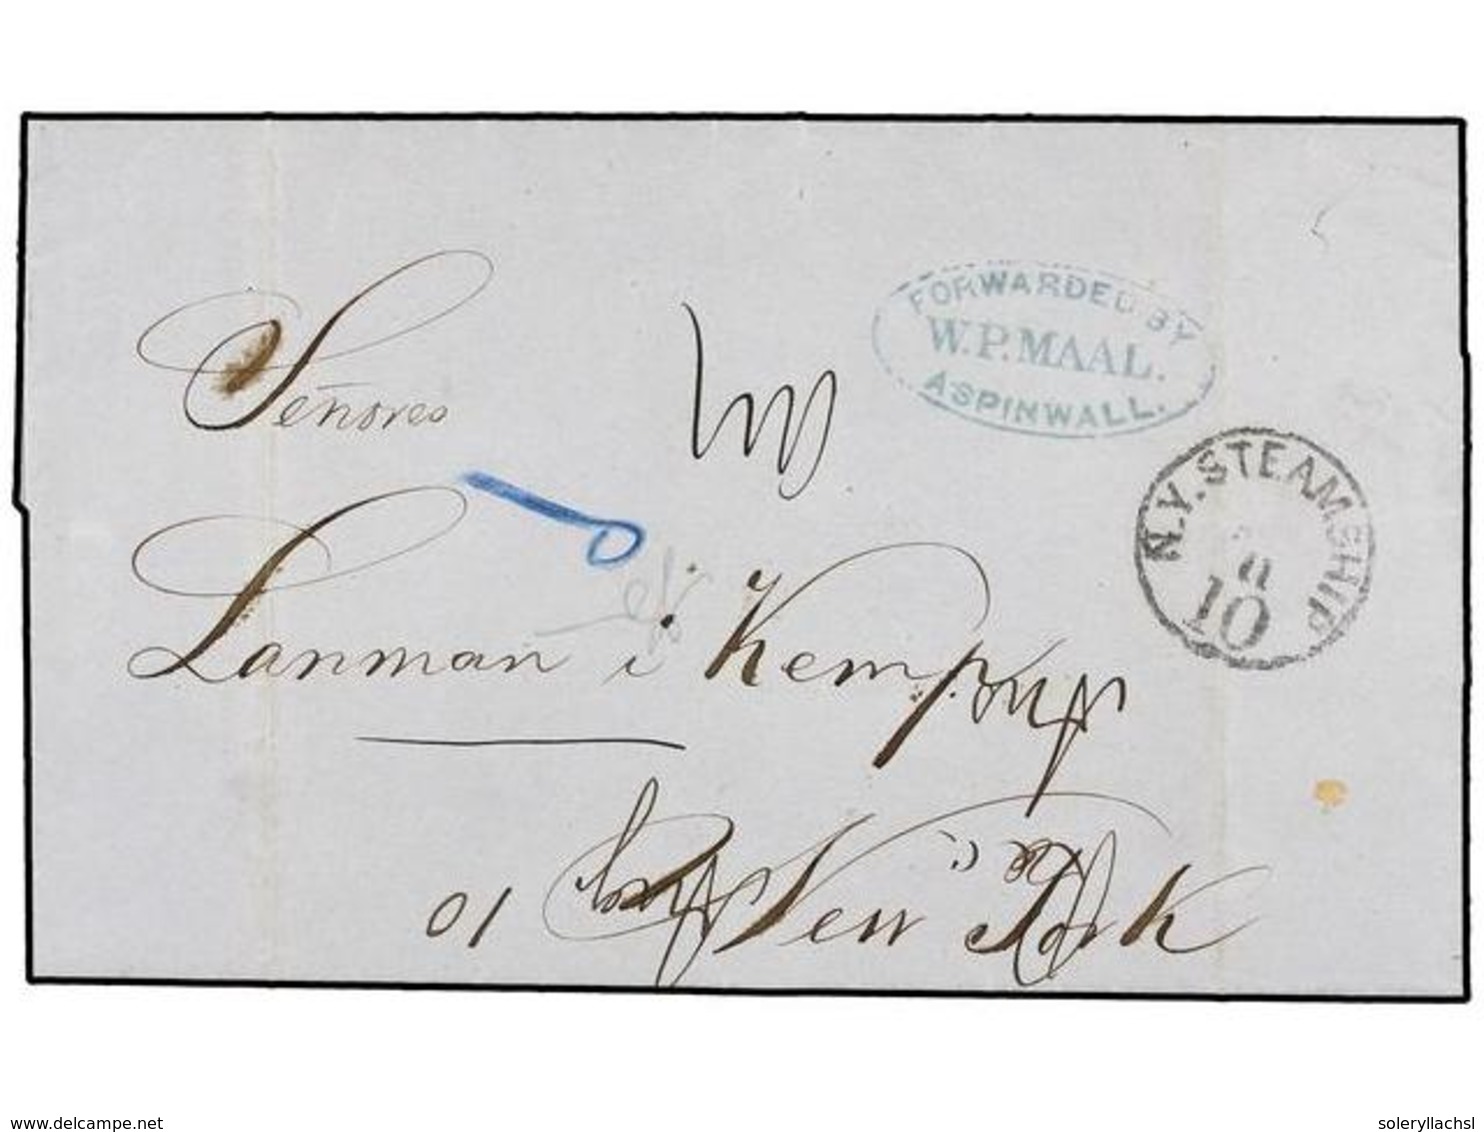 Señores
FORWARDED BY
W.P. MAAL.
ASPINWALL.
N.Y. STEAMSHIP
10
Lanman i Kemp
New York
10
delcampe.net
soleryllachsl